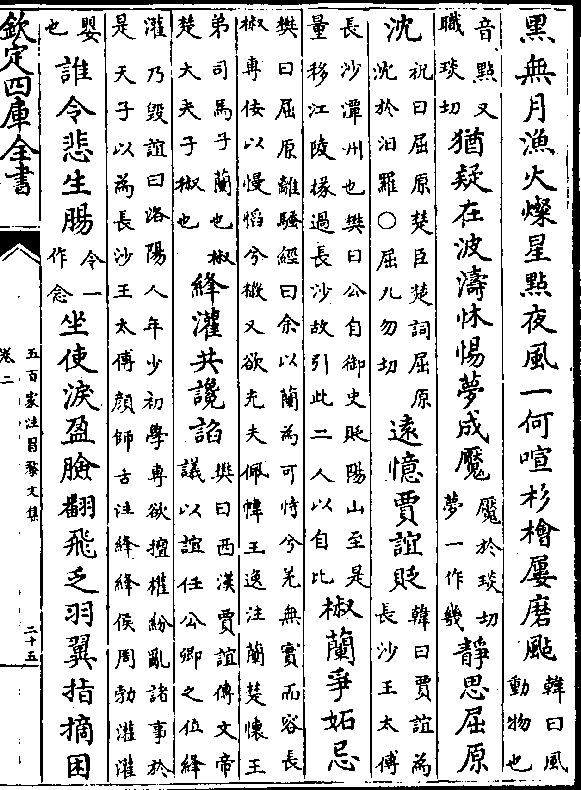 黑無月漁火燦星點夜風一何喧杉檜屢磨颭韓曰風動物也
音點又職琰切猶疑在波濤怵惕夢成魘魘於琰切夢一作幾靜思屈原
沈祝曰屈原楚臣楚詞屈原沈於汨羅○屈九勿切遠憶賈誼貶韓曰賈誼為長沙王太傅
長沙潭州也樊曰公自御史貶陽山至是量移江陵掾過長沙故引此二人以自比椒蘭爭妬忌
樊曰屈原離騷經曰余以蘭為可恃兮羌無實而容長椒專佞以慢慆兮樧又欲充夫佩幃王逸注蘭楚懷王
弟司馬子蘭也椒楚大夫子椒也絳灌共讒諂樊曰西漢賈誼傳文帝議以誼任公卿之位絳
灌乃毀誼曰洛陽人年少初學專欲擅權紛亂諸事於是天子以為長沙王太傅顏師古注絳絳侯周勃灌灌
嬰也誰令悲生腸令一作念坐使淚盈臉翻飛乏羽翼指摘困
欽定四庫全書
五百家注昌黎文集
卷二
二十五